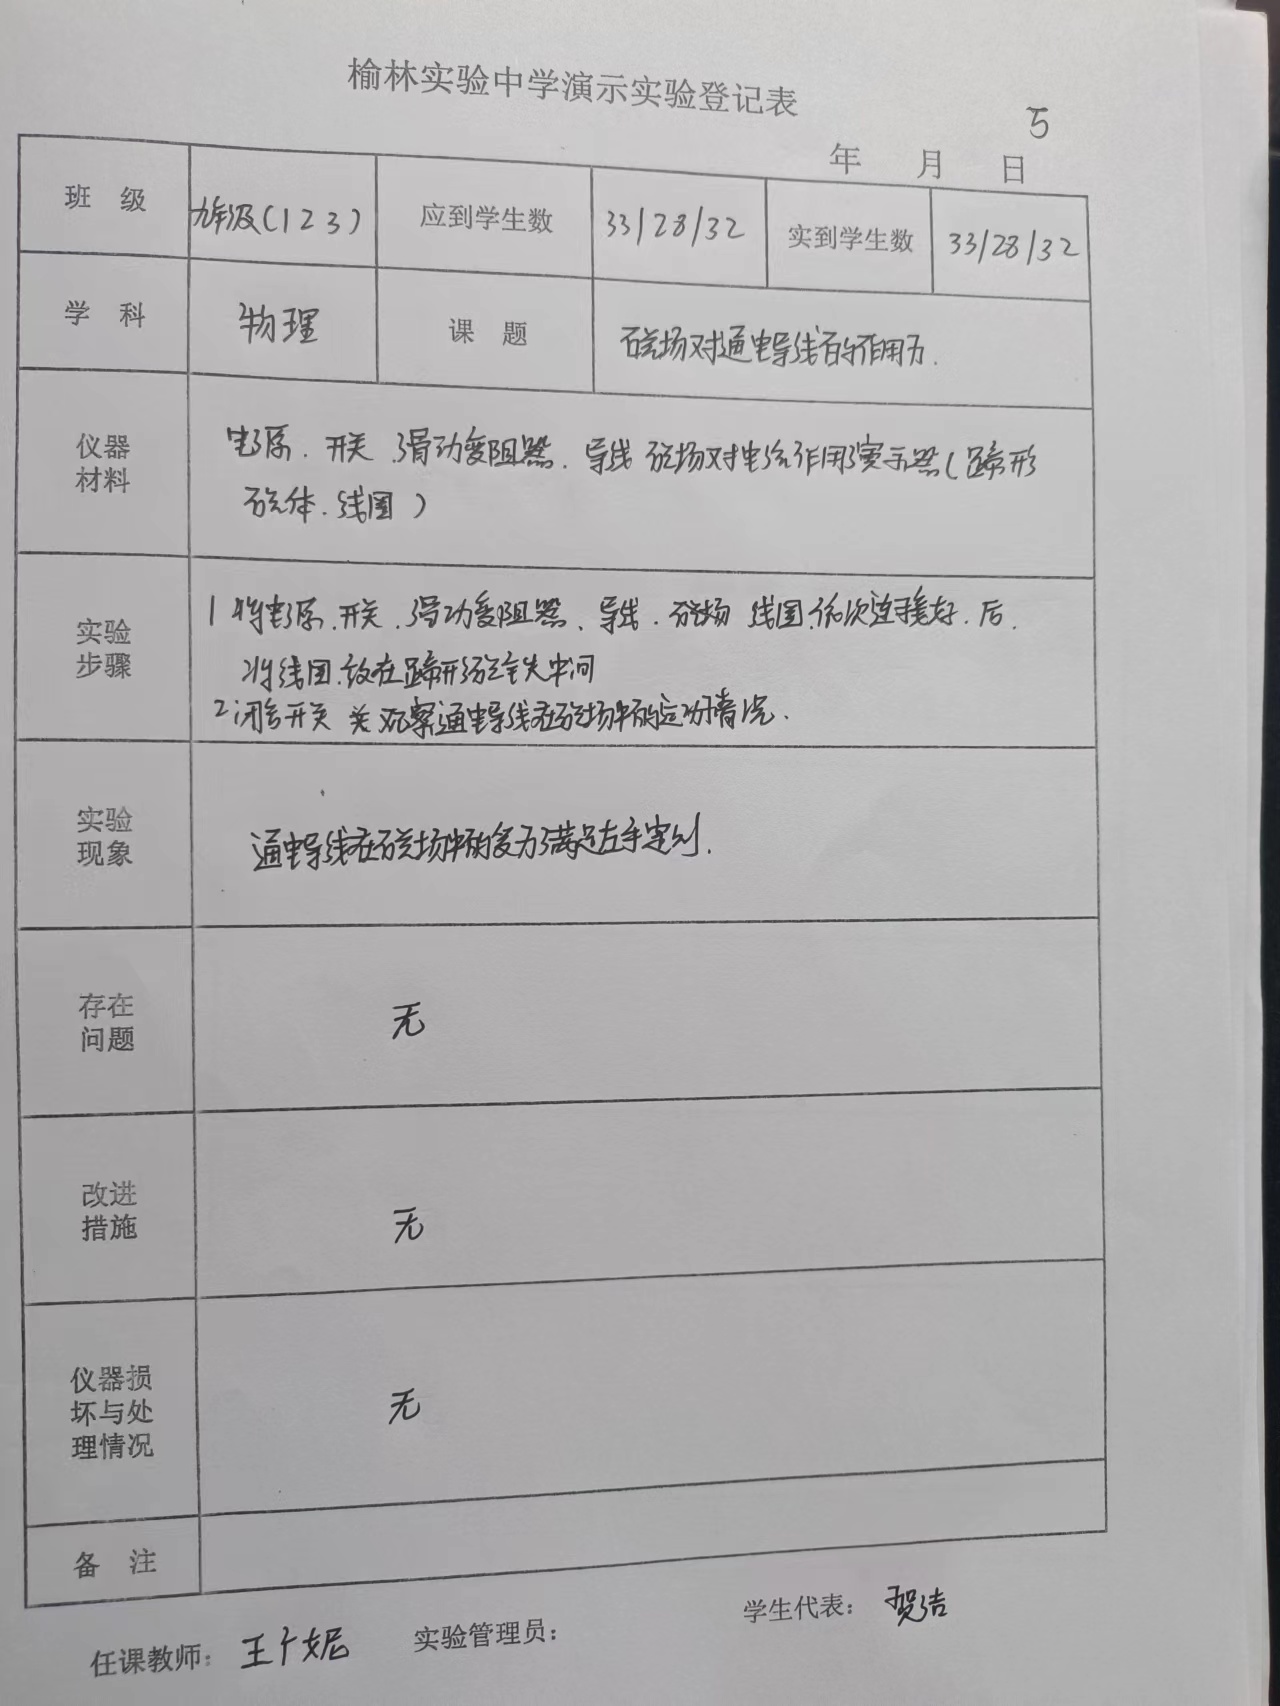 榆林实验中学演示实验登记表
5
年 月 日
班 级 九年级(1 2 3) 应到学生数 33/28/32 实到学生数 33/28/32
学 科 物理 课 题 磁场对通电导线的作用力.
仪器
材料
电源、开关、滑动变阻器、导线 磁场对电流作用演示器(蹄形
磁体、线圈)
实验
步骤
1 将电源、开关、滑动变阻器、导线、磁场 线圈依次连接好、后、
将线圈放在蹄形磁铁中间
2 闭合开关 关 观察通电导线在磁场中的运动情况.
实验
现象
通电导线在磁场中的受力满足左手定则.
存在
问题
无
改进
措施
无
仪器损
坏与处
理情况
无
备 注
任课教师: 王 妮 实验管理员: 学生代表: 贺洁